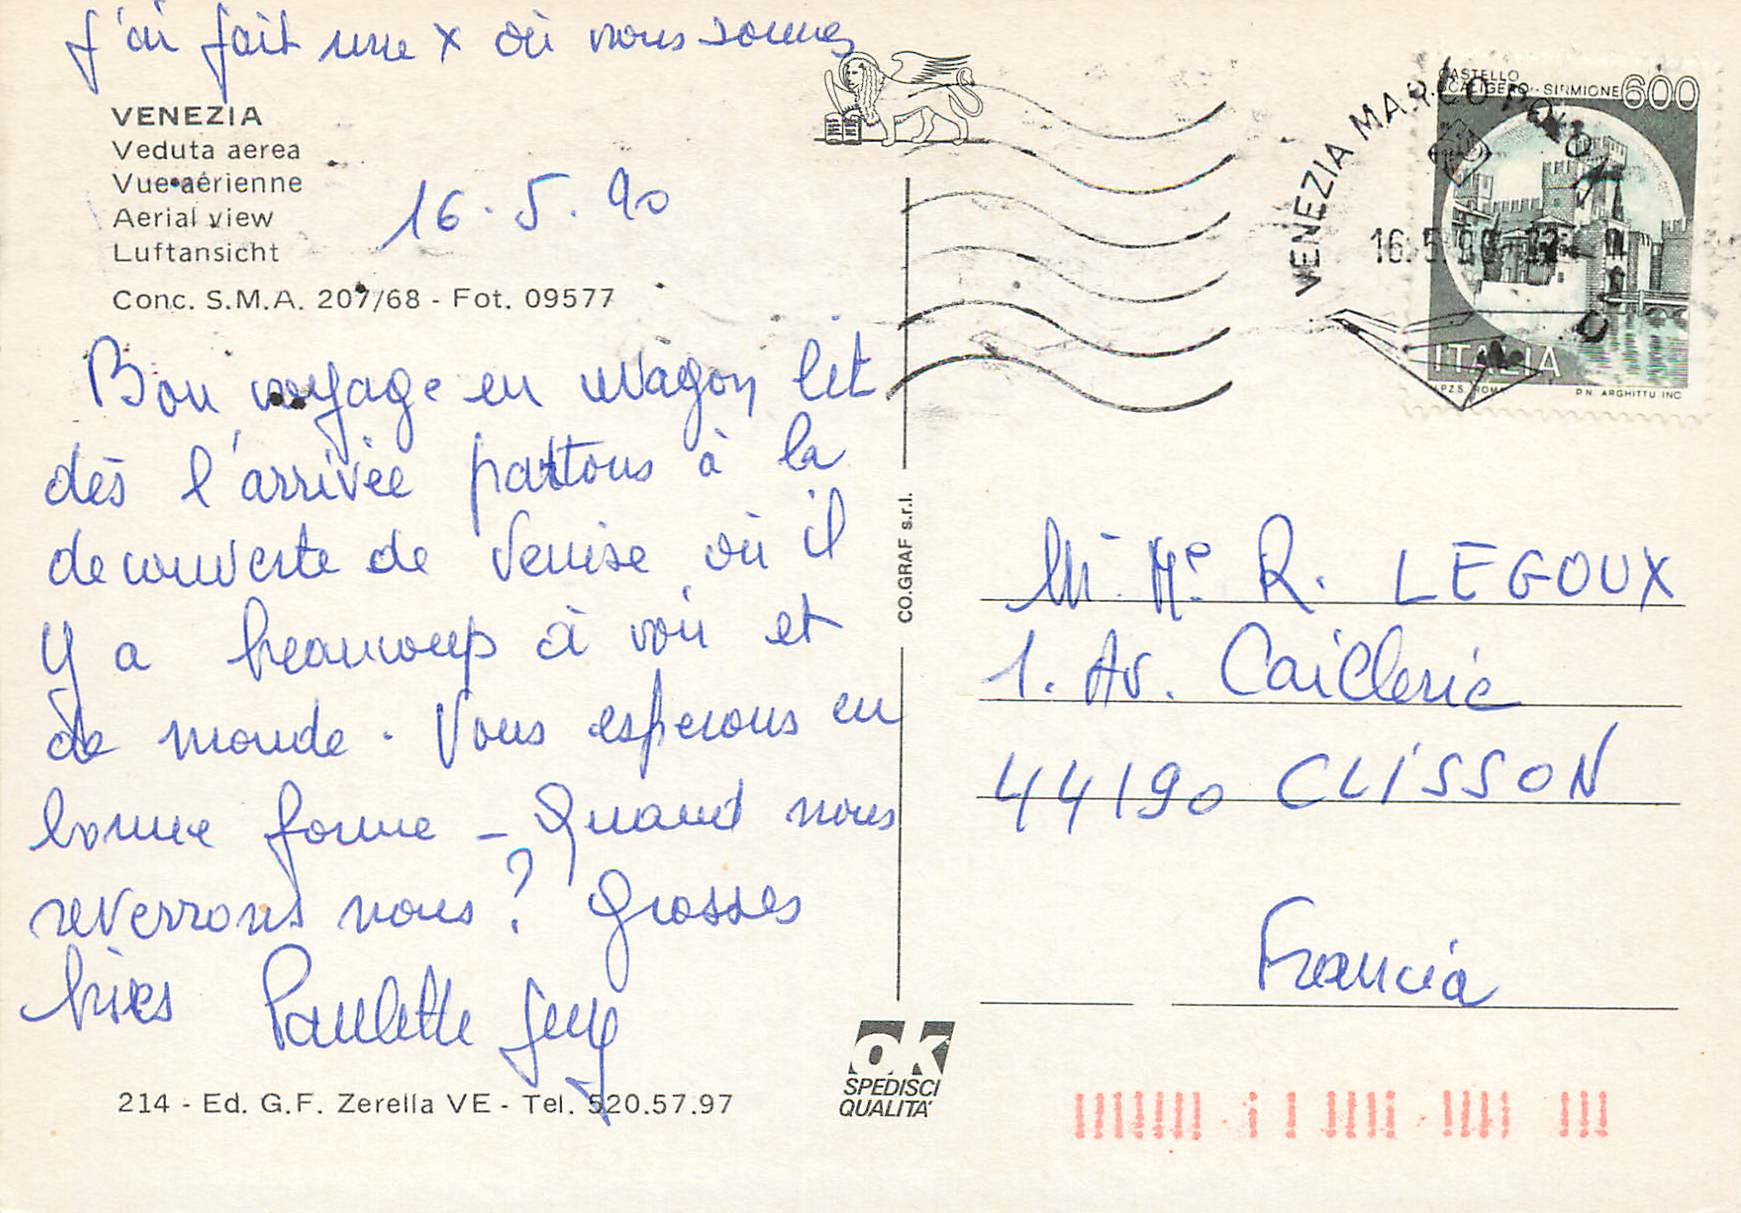 J'ai fait une x où nous sommes
VENEZIA
Veduta aerea
Vue aérienne
Aerial view
Luftansicht
16.5.90
Conc. S.M.A. 207/68 - Fot. 09577
Bon voyage en wagon lit
dès l'arrivée partons à la
decouverte de Venise où il
Y a beaucoup à voir et
de monde. Vous esperons en
bonne forme - Quand nous
reverrons nous ? Grosses
bises Paulette Guy
214 - Ed. G.F. Zerella VE - Tel. 520.57.97
CO.GRAF s.r.l.
OK
SPEDISCI
QUALITA'
CASTELLO
SCALIGERO - SIRMIONE 600
ITALIA
I.P.Z.S. ROMA
P.N. ARGHITTU INC
VENEZIA MARCO POLO
16.5.90
M. Me R. LEGOUX
1. Av. Caillerie
44190 CLISSON
Francia